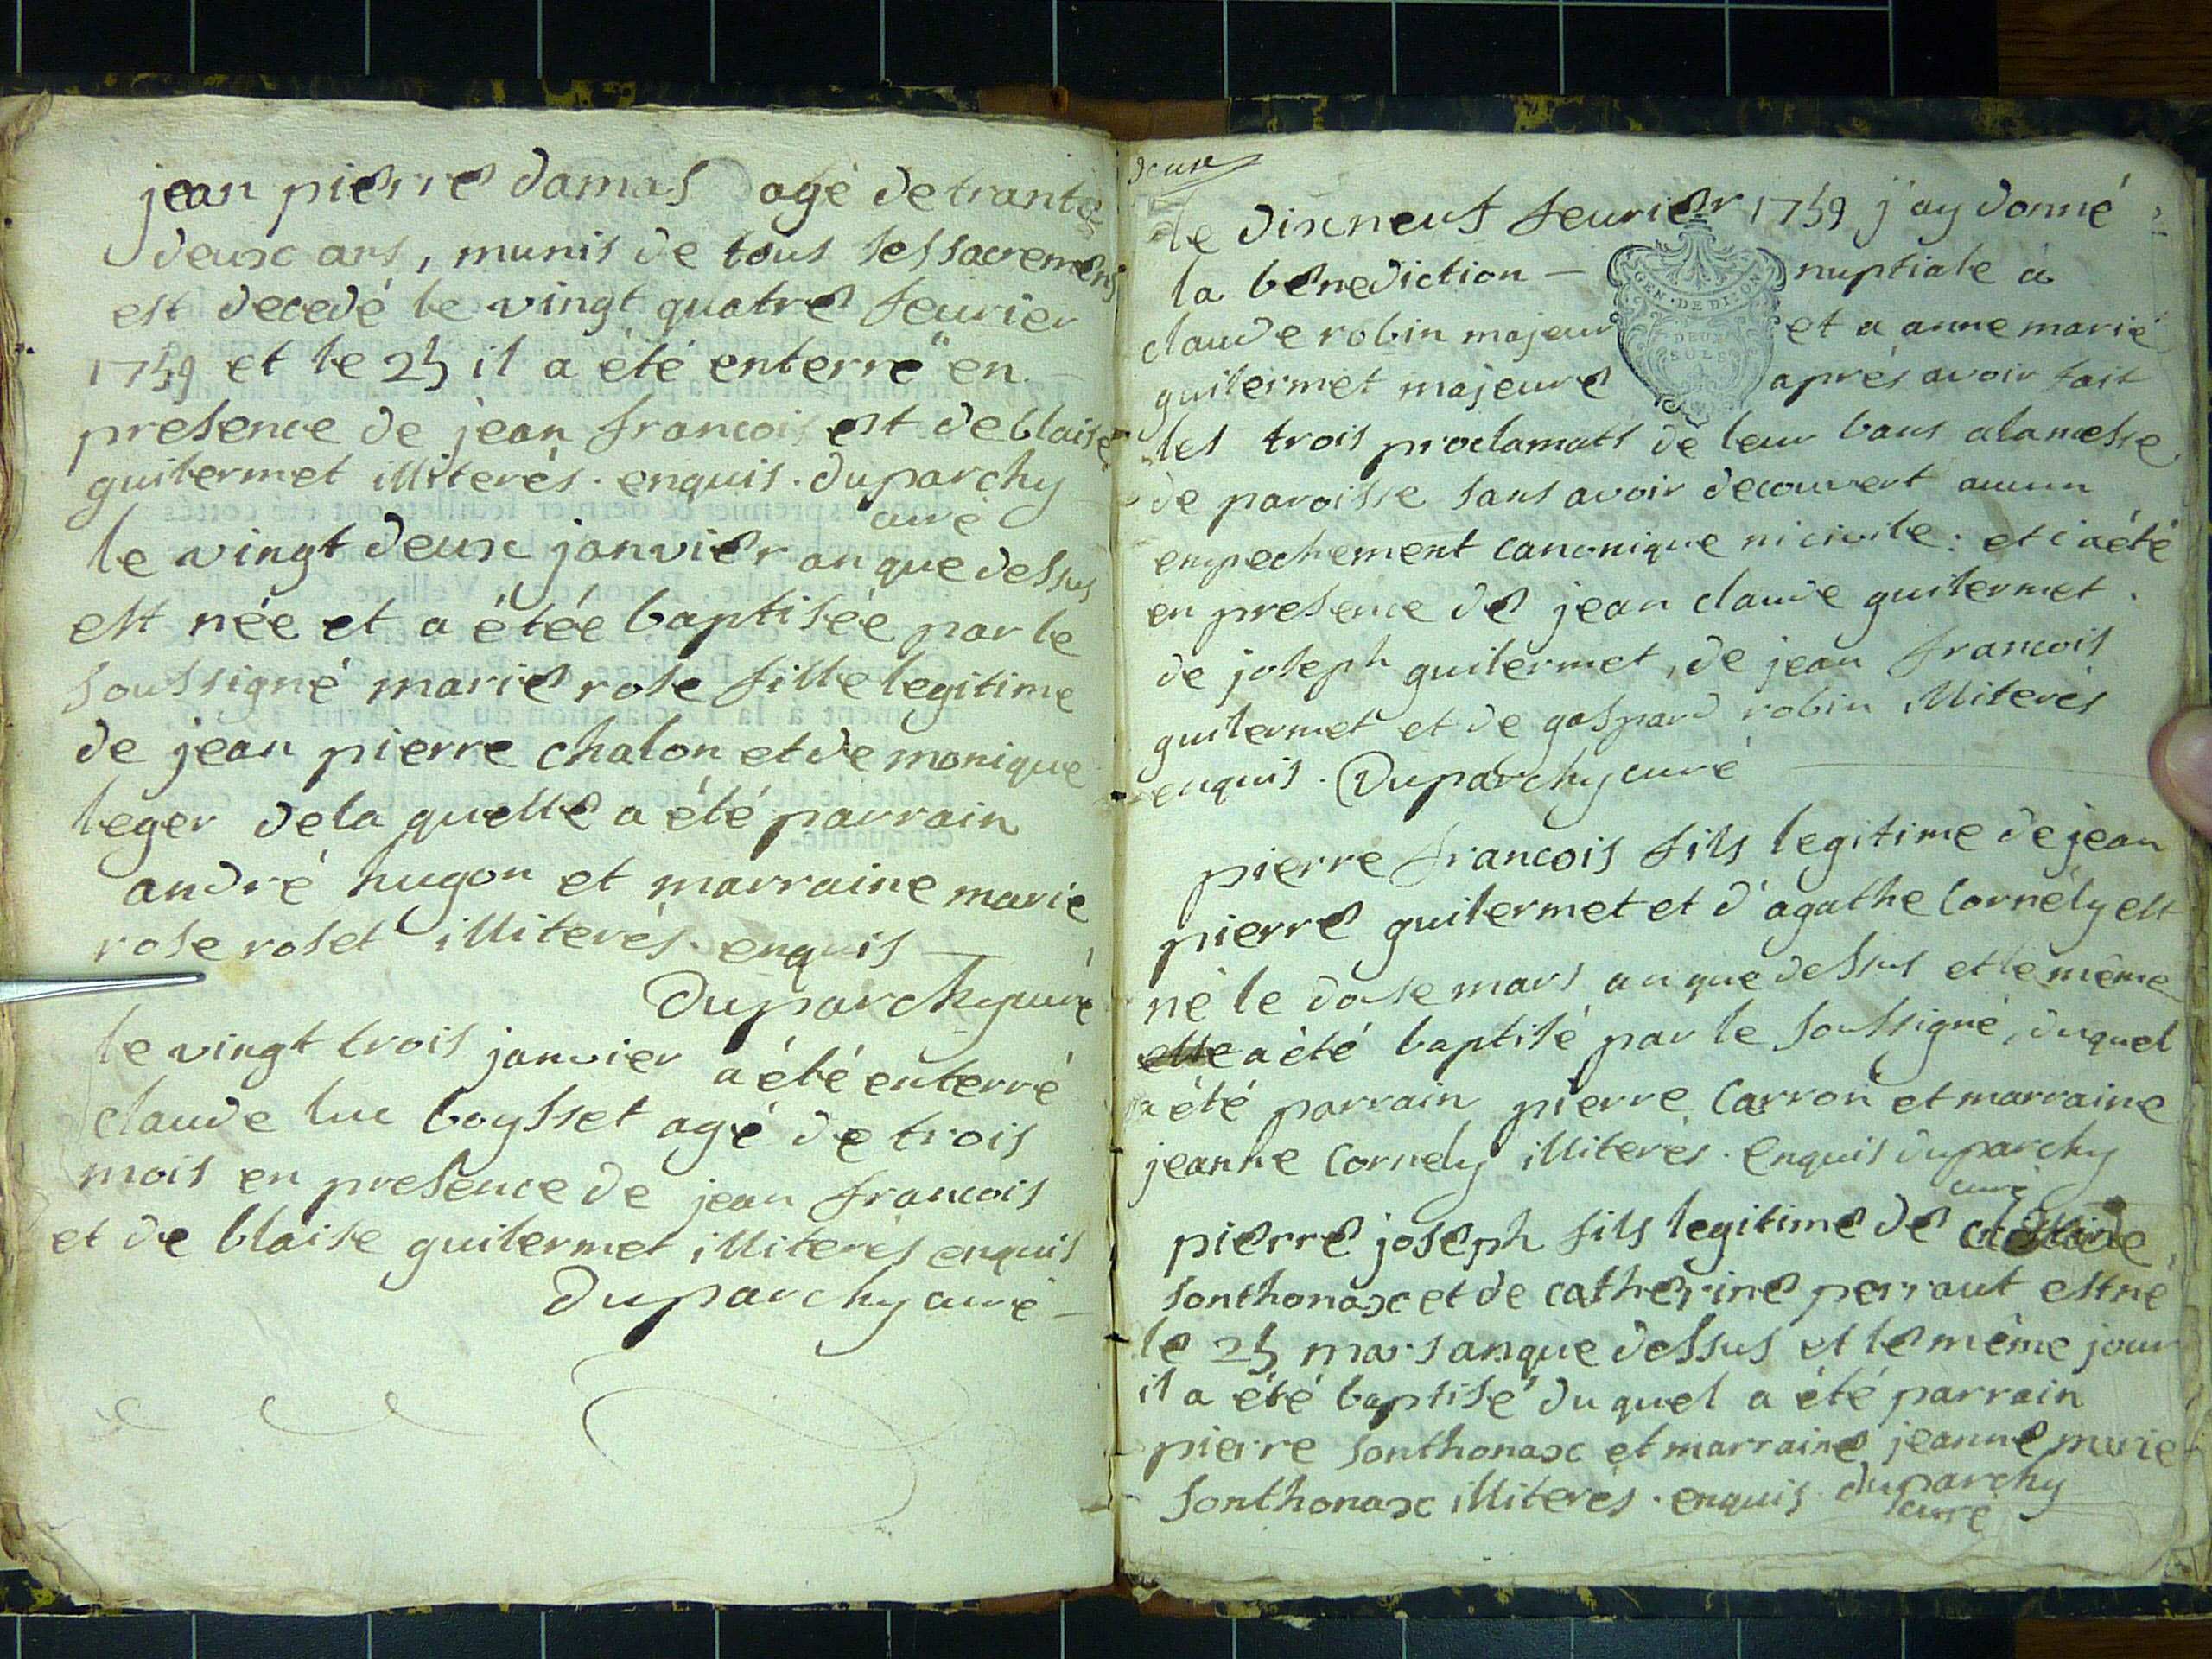 jean pierre damas agé de trante
deux ans, munis de tous ses sacremens
est decedé le vingt quatre feurier
1759 et le 25 il a été enterré en
presence de jean francois et de blaise
guilermet illiterés. enquis. duparchy
curé
le vingt deux janvier an que dessus
est née et a étée baptisée par le
soussigné marie rose fille legitime
de jean pierre chalon et de monique
leger de la quelle a été parrain
andré hugon et marraine marie
rose roset illiterés. enquis
Duparchy curé
le vingt trois janvier a été enterré
claude luc boysset agé de trois
mois en presence de jean francois
et de blaise guilermet illiterés enquis
Duparchy curé
deux
le dixneuf feurier 1759 j'ay donné
la benediction - nuptiale à
claude robin majeur et a anne marie
guilermet majeure aprés avoir fait
les trois proclamats de leur bans a la messe
de paroisse sans avoir decouvert aucun
empechement canonique ni civile: et c'a été
en presence de jean claude guilermet.
de joseph guilermet, de jean francois
guilermet et de gaspard robin illiterés
enquis. Duparchy curé
GEN. DE DIJON
DEUX
SOLS
pierre francois fils legitime de jean
pierre guilermet et d'agathe Cornély est
né le douse mars an que dessus et le même
a été baptisé par le soussigné, duquel
a été parrain pierre Carron et marraine
jeanne Cornely illiterés. Enquis duparchy
curé
pierre joseph fils legitime de
sonthonax et de catherine perraut est né
le 25 mars an que dessus et le même jour
il a été baptisé du quel a été parrain
pierre sonthonax et marraine jeanne marie
sonthonax illiterés. enquis duparchy
curé